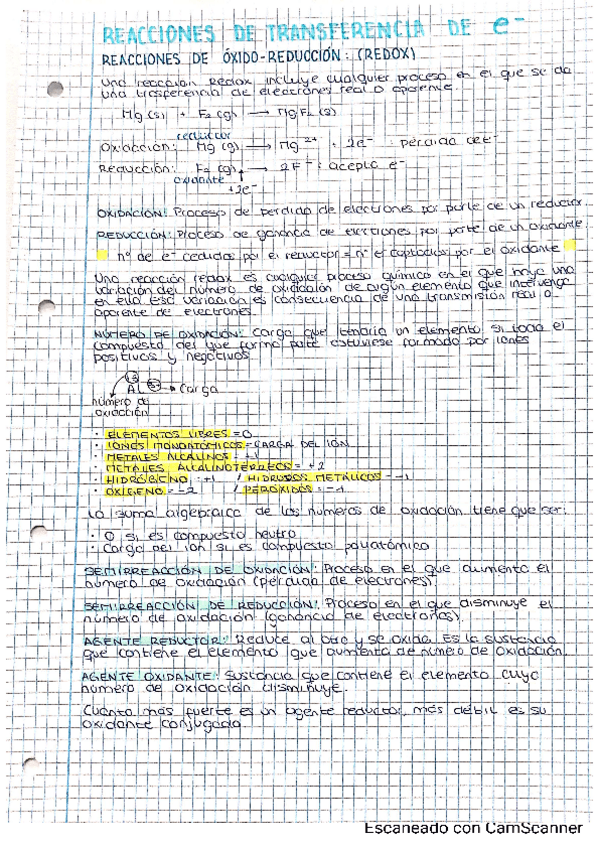 REACCIONES DE TRANSFERENCIA DE e⁻
REACCIONES DE ÓXIDO-REDUCCIÓN: (REDOX)
Una reacción Redox incluye cualquier proceso en el que se da
una trasferencia de electrones real o aparente
Mg (s) + F₂ (g) → MgF₂ (s)
reductor
Oxidación: Mg (g) → Mg²⁺ + 2e⁻ : pérdida de e⁻
Reducción: F₂ (g) → 2F⁻ : acepta e⁻
oxidante +2e⁻
OXIDACIÓN: Proceso de perdida de electrones por parte de un reductor.
REDUCCIÓN: Proceso de ganancia de electrones por parte de un oxidante.
nº de e⁻ cedidos por el reductor = nº e⁻ captados por el oxidante
Una reacción redox es cualquier proceso químico en el que haya una
variación del número de oxidación de algún elemento que intervenga
en ella esa variación es consecuencia de una transmisión real o
aparente de electrones.
NÚMERO DE OXIDACIÓN: Carga que tendría un elemento si todo el
compuesto del que forma parte estuviese formado por iones
positivos y negativos
+3
Al 3+ → Carga
número de
oxidación
· ELEMENTOS LIBRES = 0
· IONES MONOATÓMICOS = CARGA DEL ION
· METALES ALCALINOS = +1
· METALES ALCALINOTÉRREOS = +2
· HIDRÓGENO = +1 / HIDRUROS METÁLICOS = -1
· OXÍGENO = -2 / PERÓXIDOS = -1
La suma algebraica de los números de oxidación tiene que ser:
· 0 si es compuesto neutro
· Carga del ion si es compuesto poliatómico
SEMIRREACCIÓN DE OXIDACIÓN: Proceso en el que aumenta el
número de oxidación (pérdida de electrones)
SEMIRREACCIÓN DE REDUCCIÓN: Proceso en el que disminuye el
número de oxidación (ganancia de electrones).
AGENTE REDUCTOR: Reduce al otro y se oxida. Es la sustancia
que contiene el elemento que aumenta de número de oxidación.
AGENTE OXIDANTE: Sustancia que contiene el elemento cuyo
número de oxidación disminuye.
Cuanto más fuerte es un agente reductor, más débil es su
oxidante conjugado.
Escaneado con CamScanner